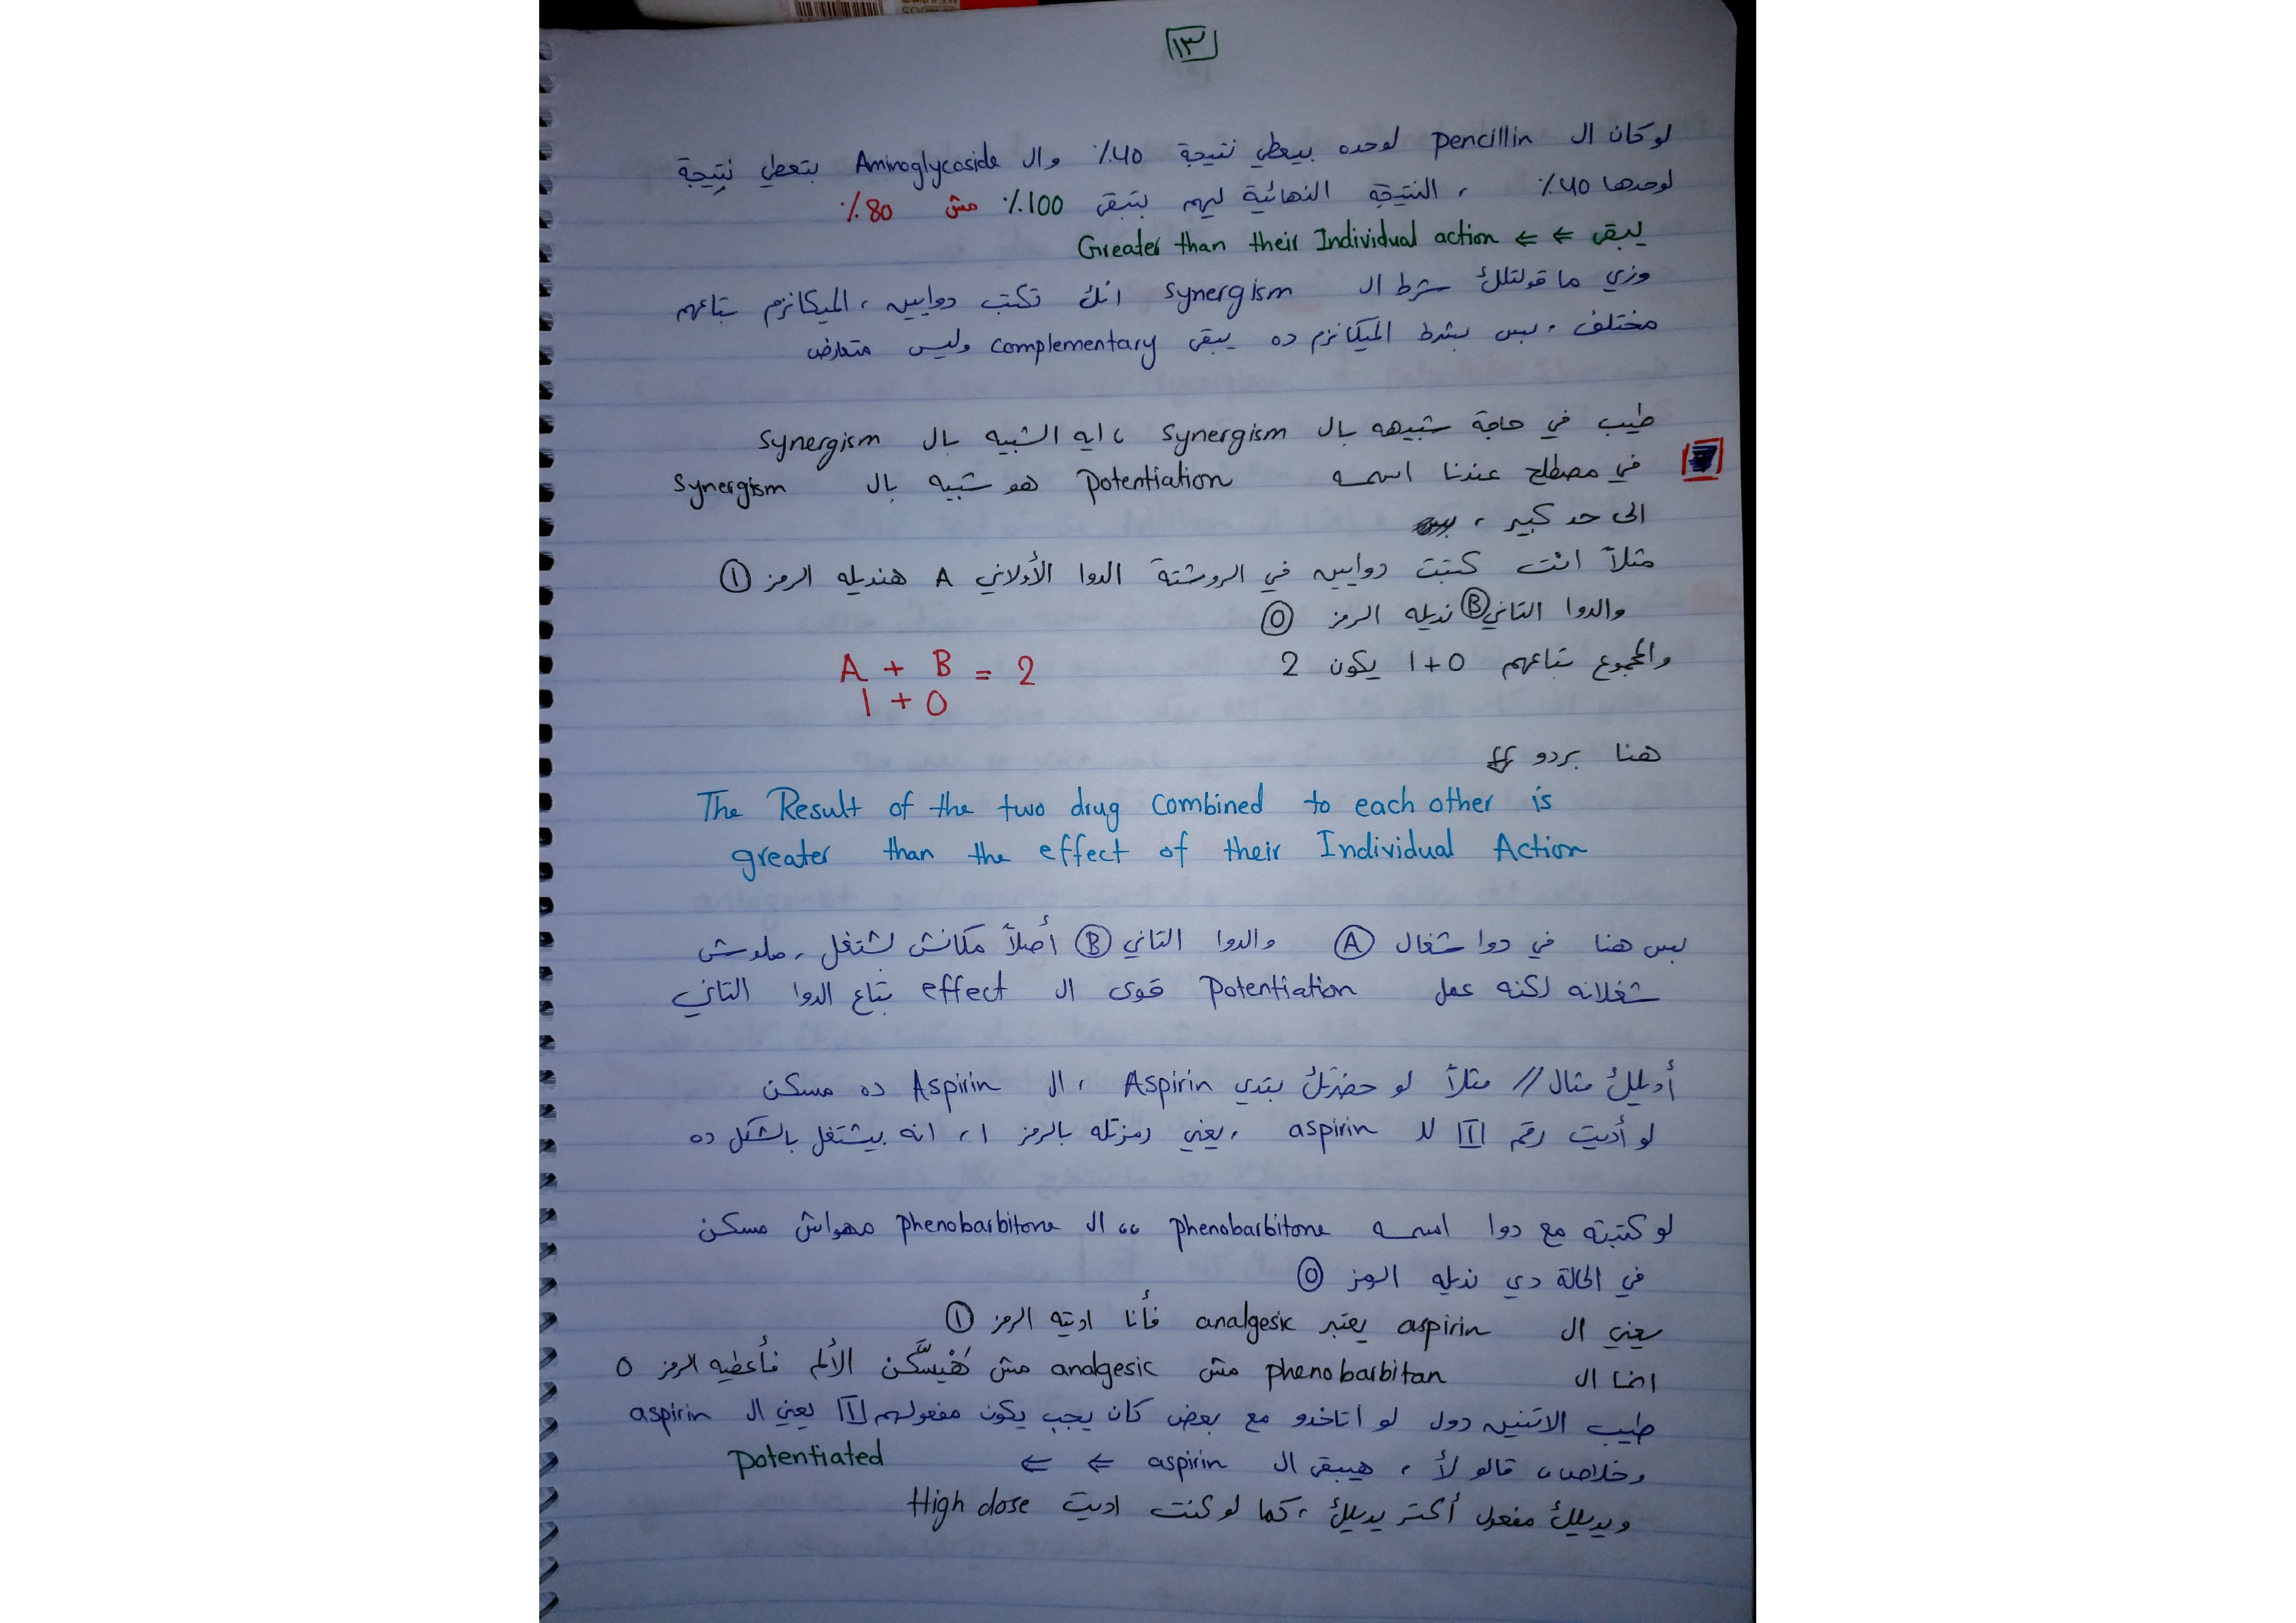 ١٣
لو كان ال pencillin لوحده بيعطي نتيجة ٪40 وال Aminoglycoside بتعطي نتيجة
لوحدها ٪40 ، النتيجة النهائية ليهم بتبقى ٪100 مش ٪80
يبقى ⇐ ⇐ Greater than their Individual action
وزي ما قولتلك شرط ال synergism انك تكتب دوايين ، الميكانزم بتاعهم
مختلف . بس بشرط الميكانزم ده يبقى complementary وليس متعارض
طيب في حاجة شبيهه بال synergism ، ايه الشبيه بال synergism
في مصطلح عندنا اسمه potentiation هو شبيه بال Synergism
الى حد كبير ،
مثلاً انت كتبت دوايين في الروشتة الدوا الأولاني A هنديله الرمز ①
والدوا التاني Ⓑ نديله الرمز ⓪
والمجموع بتاعهم 1+0 يكون 2
A + B = 2
1 + 0
هنا بردو
The Result of the two drug combined to each other is
greater than the effect of their Individual Action
بس هنا في دوا شغال Ⓐ والدوا التاني Ⓑ أصلاً مكانش بشتغل ، ملوش
شغلانه لكنه عمل potentiation قوى ال effect بتاع الدوا التاني
أديلك مثال // مثلاً لو حضرتك بتدي Aspirin ، ال Aspirin ده مسكن
لو أديت رقم 1 لل aspirin ، يعني رمزتله بالرمز 1 ، انه بيشتغل بالشكل ده
لو كتبته مع دوا اسمه phenobarbitone ،، ال phenobarbitone مهواش مسكن
في الحالة دي نديله الرمز ⓪
يعني ال aspirin يعتبر analgesic فأنا اديته الرمز ①
انما ال phenobarbitan مش analgesic مش هَيْسَّكن الألم فأعطيه الرمز 0
طيب الاتنين دول لو اتاخدو مع بعض كان يجب يكون مفعولهم 1 يعني ال aspirin
وخلاص ،، قالو لأ ، هيبقى ال aspirin ⇐ ⇐ potentiated
ويديلك مفعول أكتر يديلك ، كما لو كنت اديت High dose